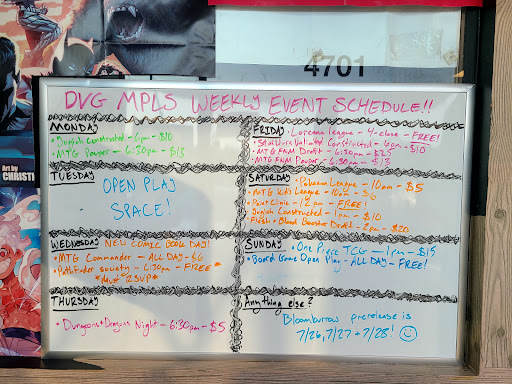 4701
Art by
CHRISTI
DVG MPLS WEEKLY EVENT SCHEDULE!!
MONDAY
• Junish Constructed - 6pm - $10
• MTG Pauper - 6:30pm - $13
TUESDAY
OPEN PLAY
SPACE!
WEDNESDAY NEW COMIC BOOK DAY!
• MTG Commander - ALL DAY - $6
• Pathfinder Society - 6:30pm - FREE*
*Must RSVP*
THURSDAY
• Dungeons + Dragons Night - 6:30pm - $5
FRIDAY • Lorcana League - 4-close - FREE!
• Star Wars Unlimited Constructed - 6pm - $10
• MTG FNM Draft - 6:30pm
• MTG FNM Pauper - 6:30pm - $13
SATURDAY • Pokemon League - 10am - $5
• MTG Kid's League - 10am - $6
• Paint Clinic - 12pm - FREE!
• Junish Constructed - 1pm - $10
• Flesh + Blood Booster Draft - 2pm - $20
SUNDAY • One Piece TCG - 1pm - $15
• Board Game Open Play - ALL DAY - FREE!
Anything else?
Bloomburrow prerelease is
7/26, 7/27 + 7/28!